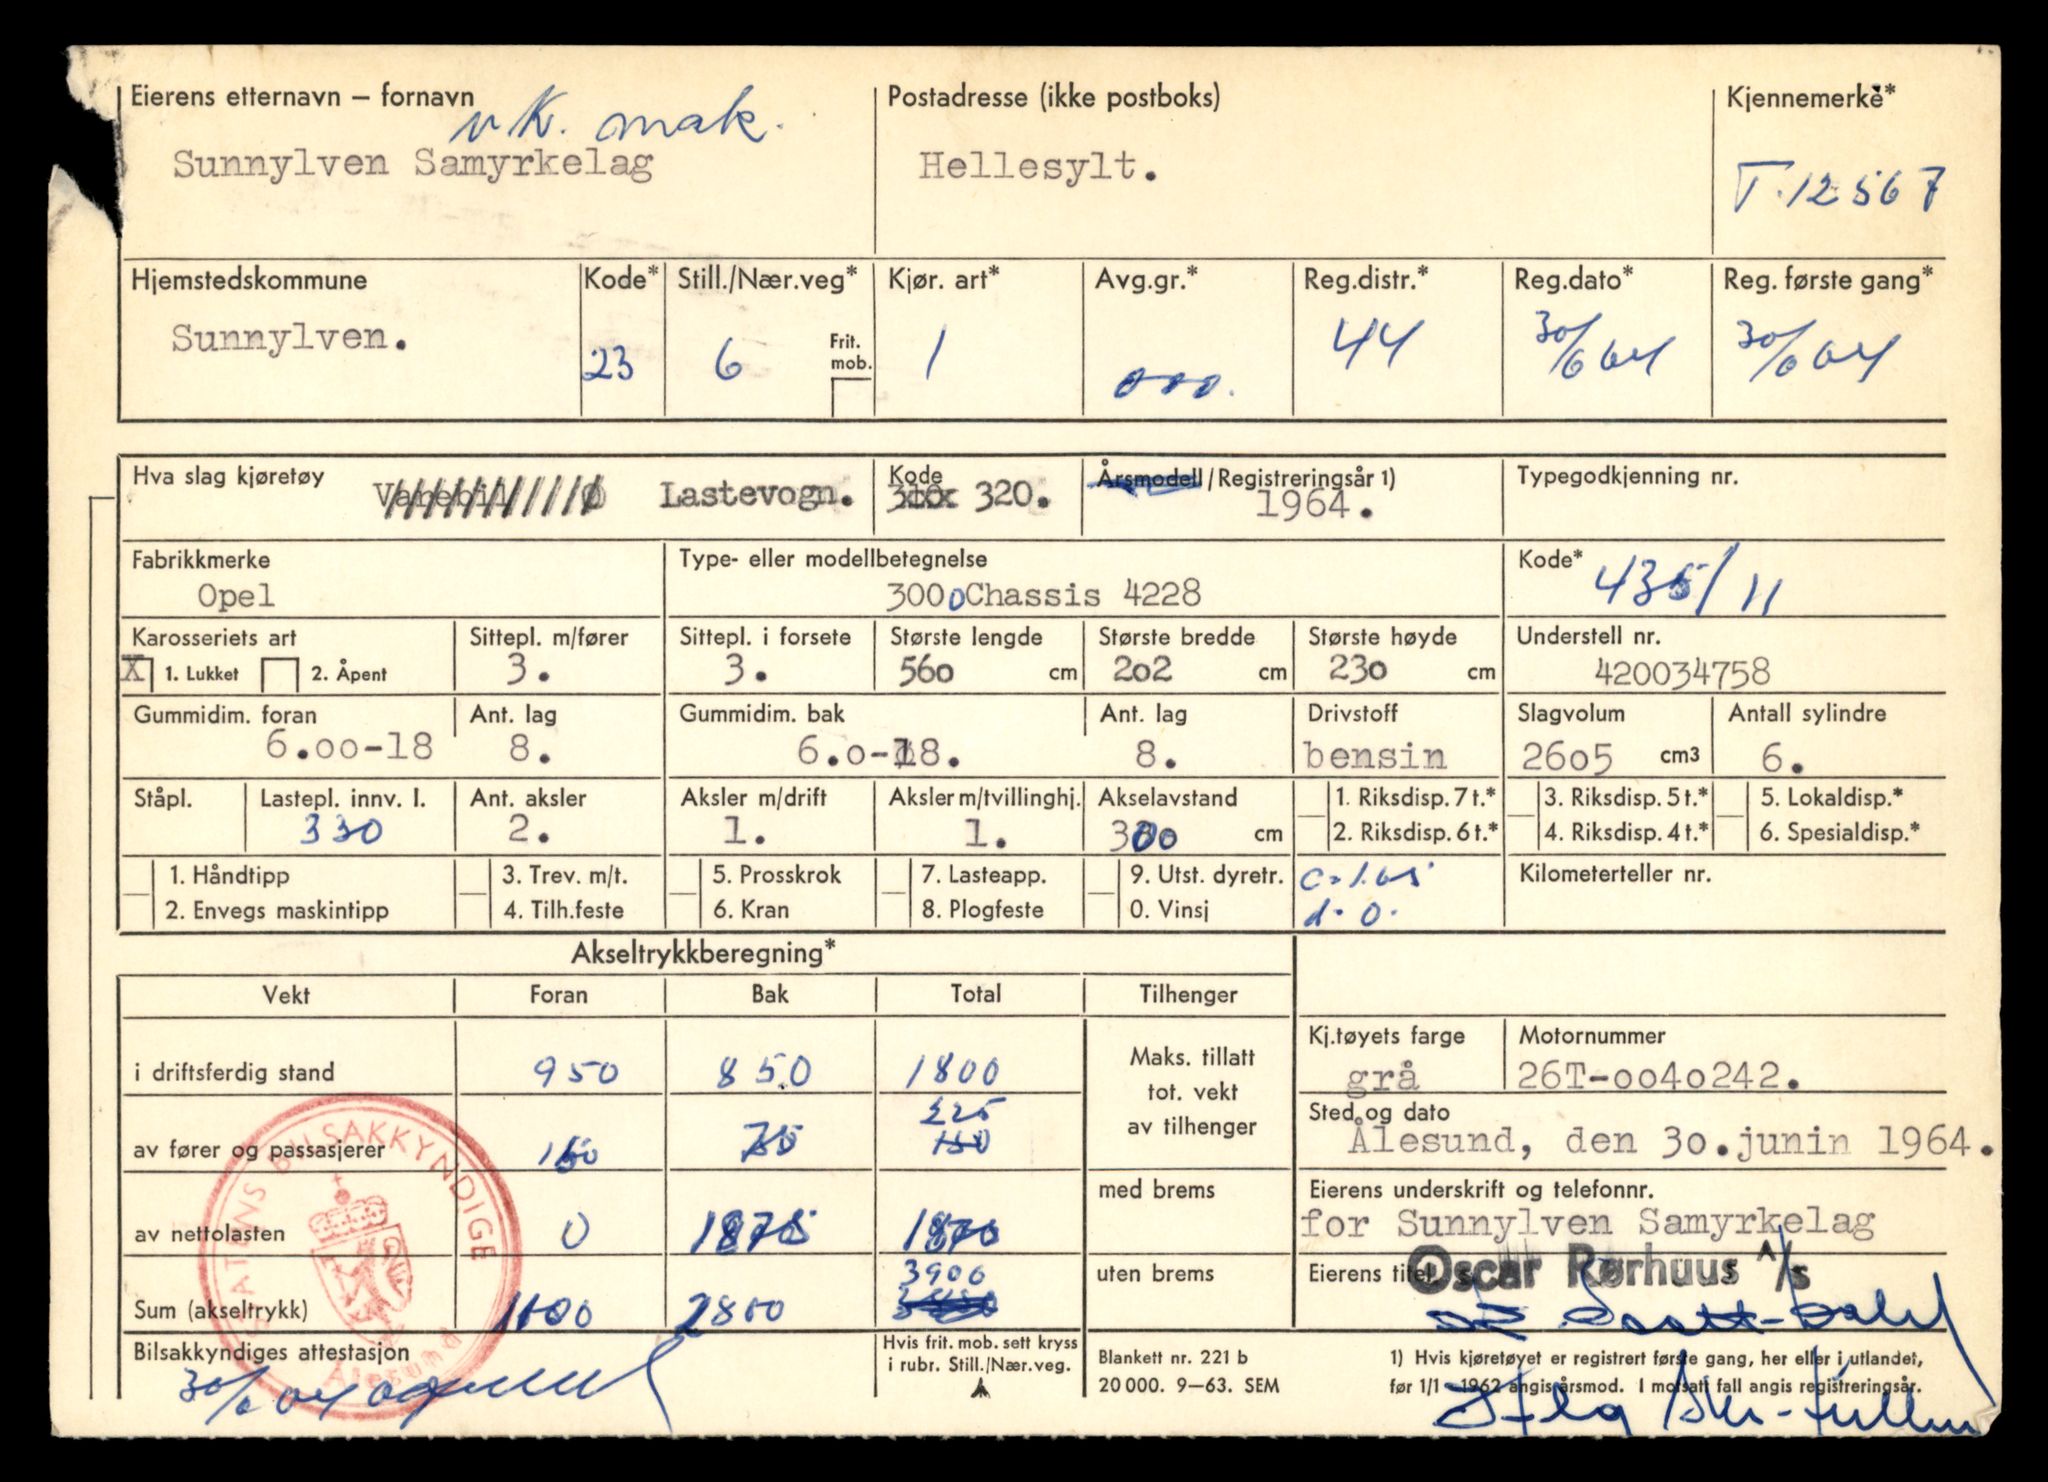 Eierens etternavn – fornavn
v K. mak.
Sunnylven Samyrkelag
Postadresse (ikke postboks)
Hellesylt.
Kjennemerke*
T-12567
Hjemstedskommune
Sunnylven.
Kode*
23
Still./Nær.veg*
6
Frit. mob.
Kjør. art*
1
Avg.gr.*
000.
Reg.distr.*
44
Reg.dato*
30/6 64
Reg. første gang*
30/6 64
Hva slag kjøretøy
Varebil Lastevogn.
Kode
310x 320.
Årsmodell/Registreringsår 1)
1964.
Typegodkjenning nr.
Fabrikkmerke
Opel
Type- eller modellbetegnelse
3000Chassis 4228
Kode*
435/11
Karosseriets art
X 1. Lukket 2. Åpent
Sittepl. m/fører
3.
Sittepl. i forsete
3.
Største lengde
560 cm
Største bredde
202 cm
Største høyde
230 cm
Understell nr.
420034758
Gummidim. foran
6.00-18
Ant. lag
8.
Gummidim. bak
6.0-18.
Ant. lag
8.
Drivstoff
bensin
Slagvolum
2605 cm3
Antall sylindre
6.
Ståpl.
Lastepl. innv. l.
330
Ant. aksler
2.
Aksler m/drift
1.
Aksler m/tvillinghj.
1.
Akselavstand
300 cm
1. Riksdisp. 7 t.*
2. Riksdisp. 6 t.*
3. Riksdisp. 5 t.*
4. Riksdisp. 4 t.*
5. Lokaldisp.*
6. Spesialdisp.*
1. Håndtipp
2. Envegs maskintipp
3. Trev. m/t.
4. Tilh.feste
5. Prosskrok
6. Kran
7. Lasteapp.
8. Plogfeste
9. Utst. dyretr.
0. Vinsj
c = 1.65
d. 0.
Kilometerteller nr.
Akseltrykkberegning*
Vekt Foran Bak Total Tilhenger
i driftsferdig stand 950 850 1800
225
av fører og passasjerer 150 75 150
av nettolasten 0 1875 1870
3900
Sum (akseltrykk) 1100 2800
Maks. tillatt
tot. vekt
av tilhenger
med brems
uten brems
Kj.tøyets farge
grå
Motornummer
26T-0040242.
Sted og dato
Ålesund, den 30.junin 1964.
Eierens underskrift og telefonnr.
for Sunnylven Samyrkelag
Eierens titel
Oscar Rørhuus A/s
Bilsakkyndiges attestasjon
30/6 64
STATENS BILSAKKYNDIGE
Ålesund
Hvis frit. mob. sett kryss
i rubr. Still./Nær.veg.
Blankett nr. 221 b
20 000. 9–63. SEM
1) Hvis kjøretøyet er registrert første gang, her eller i utlandet,
før 1/1 – 1962 angis årsmod. I motsatt fall angis registreringsår.